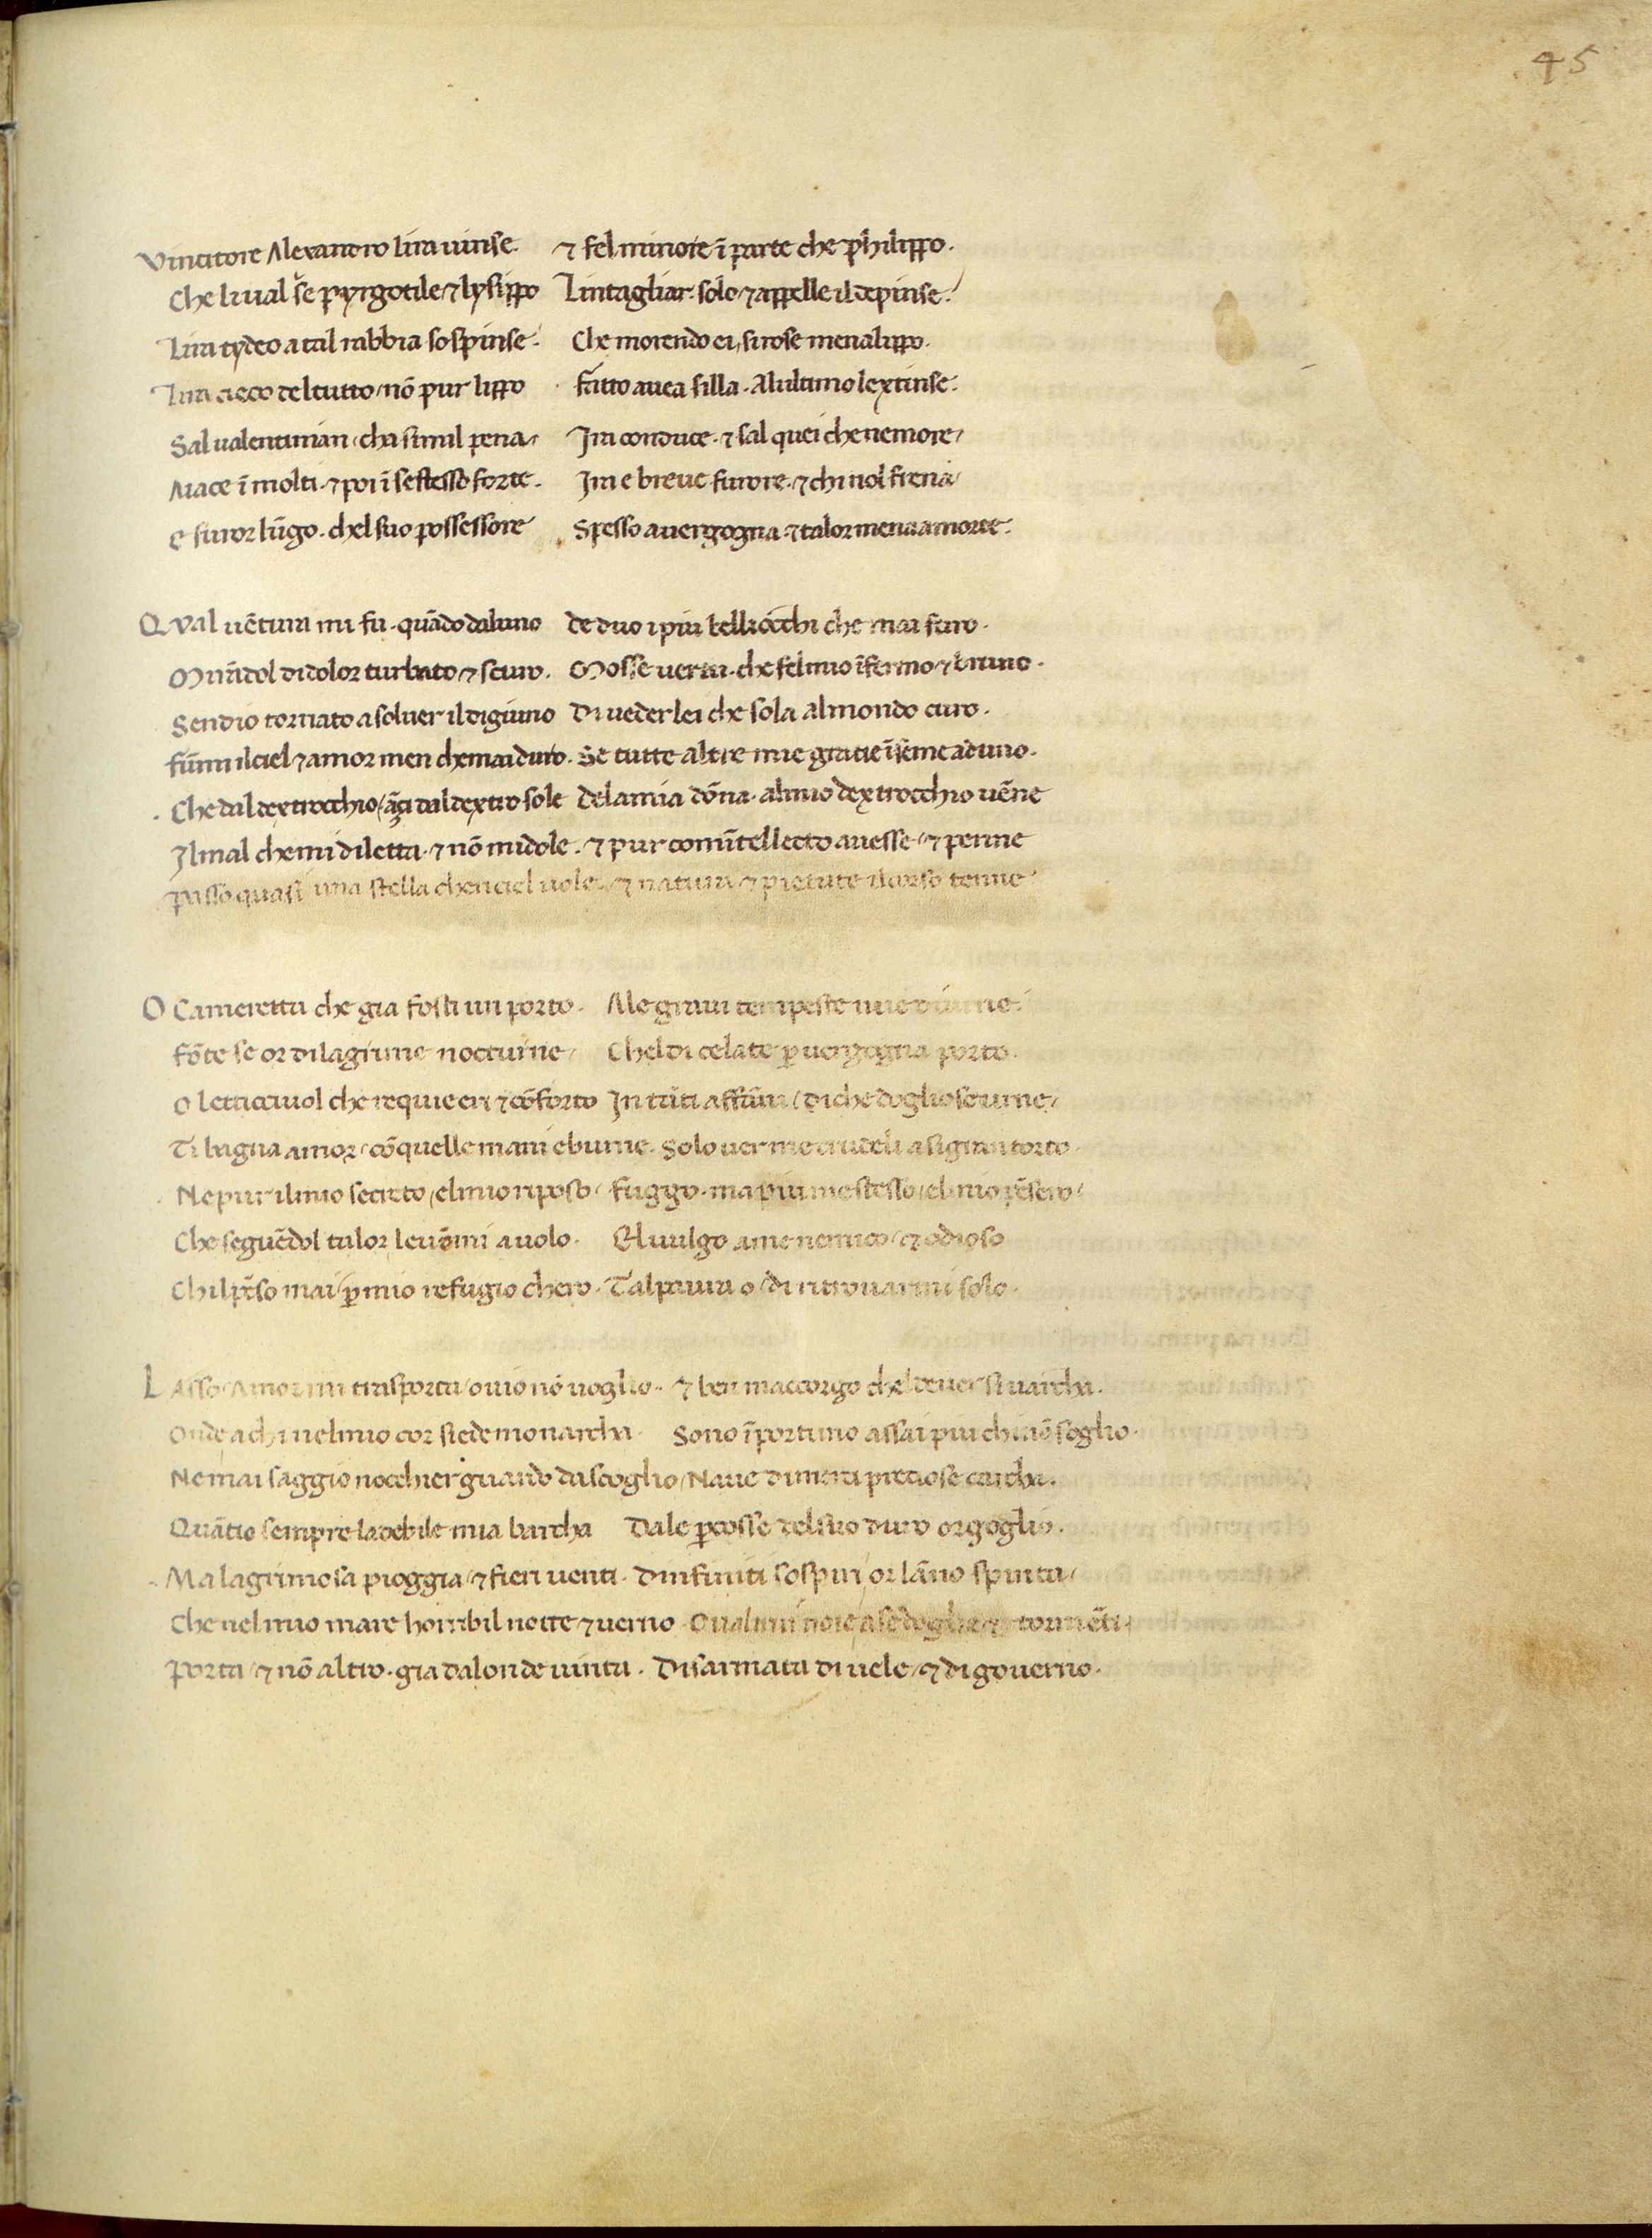 45
Vincitore Alexandro lira uinse. ⁊ fel minore ī parte che philippo.
Che li ual se pyrgotile ⁊ lysippo Lintagliar solo ⁊ appelle il depinse.
Lira tydeo a tal rabbia sospinse. Che morendo ei, si rose menalippo.
Lira cieco del tutto / nō pur lippo fatto auea silla. Alultimo lextinse.
Sal ualentinian / cha simil pena / Ira conduce. ⁊ sal quei che ne more /
Aiace ī molti. ⁊ poi ī se stesso forte. Ira e breue furore. ⁊ chi nol frena /
e furor lūgo. chel suo possessore Spesso a uergogna. ⁊ talor mena a morte.
Qval uētura mi fu. quādo daluno de duo i piu belli occhi che mai furo.
Mirādol di dolor turbato ⁊ scuro. Mosse uertu. che fel mio īfermo ⁊ bruno.
Sendio tornato a soluer il digiuno Di ueder lei che sola al mondo curo.
fūmi il ciel ⁊ amor men che mai duro. Se tutte altre mie gratie īseme aduno.
Che dal dextrocchio / āçi dal dextro sole dela mia dōna. al mio dextrocchio uēne
Il mal che mi diletta. ⁊ nō mi dole. ⁊ pur comītellecto auesse / ⁊ penne
Passo quasi una stella chen ciel uole. ⁊ natura ⁊ pietate il corso tenne
O Cameretta che gia fosti un porto. Ale graui tempeste mie diurne.
fōte se or di lagrime nocturne / Chel di celate p uergogna porto.
o letticciuol che requie eri ⁊ cōforto In tāti affāni / di che dogliose urne /
Ti bagna amor / cō quelle mani eburne. Solo uer me crudeli a si gran torto.
Ne pur il mio secreto / el mio riposo / fuggo. ma piu me stesso / el mio pēsero /
Che seguēdol talor leuōmi a uolo. El uulgo a me nemico / ⁊ odioso
Chil pēso mai / p mio refugio chero. Tal paura o / di ritrouarmi solo.
Lasso / Amor mi trasporta / ouio nō uoglio. ⁊ ben maccorgo chel deuer si uarcha.
Onde a chi nel mio cor siede monarcha. Sono īportuno assai piu chi nō soglio.
Ne mai saggio nocchier guardo da scoglio / Naue di merci pretiose carcha.
Quātio sempre la debile mia barcha Dale pcosse del suo duro orgoglio.
Ma lagrimosa pioggia / ⁊ fieri uenti. Dinfiniti sospiri or lāno spinta /
Che nel mio mare horribil notte ⁊ uerno. Oualtrui noie / a se doglie ⁊ tormēti.
Porta / ⁊ nō altro. gia dalonde uinta. Disarmata di uele / ⁊ di gouerno.